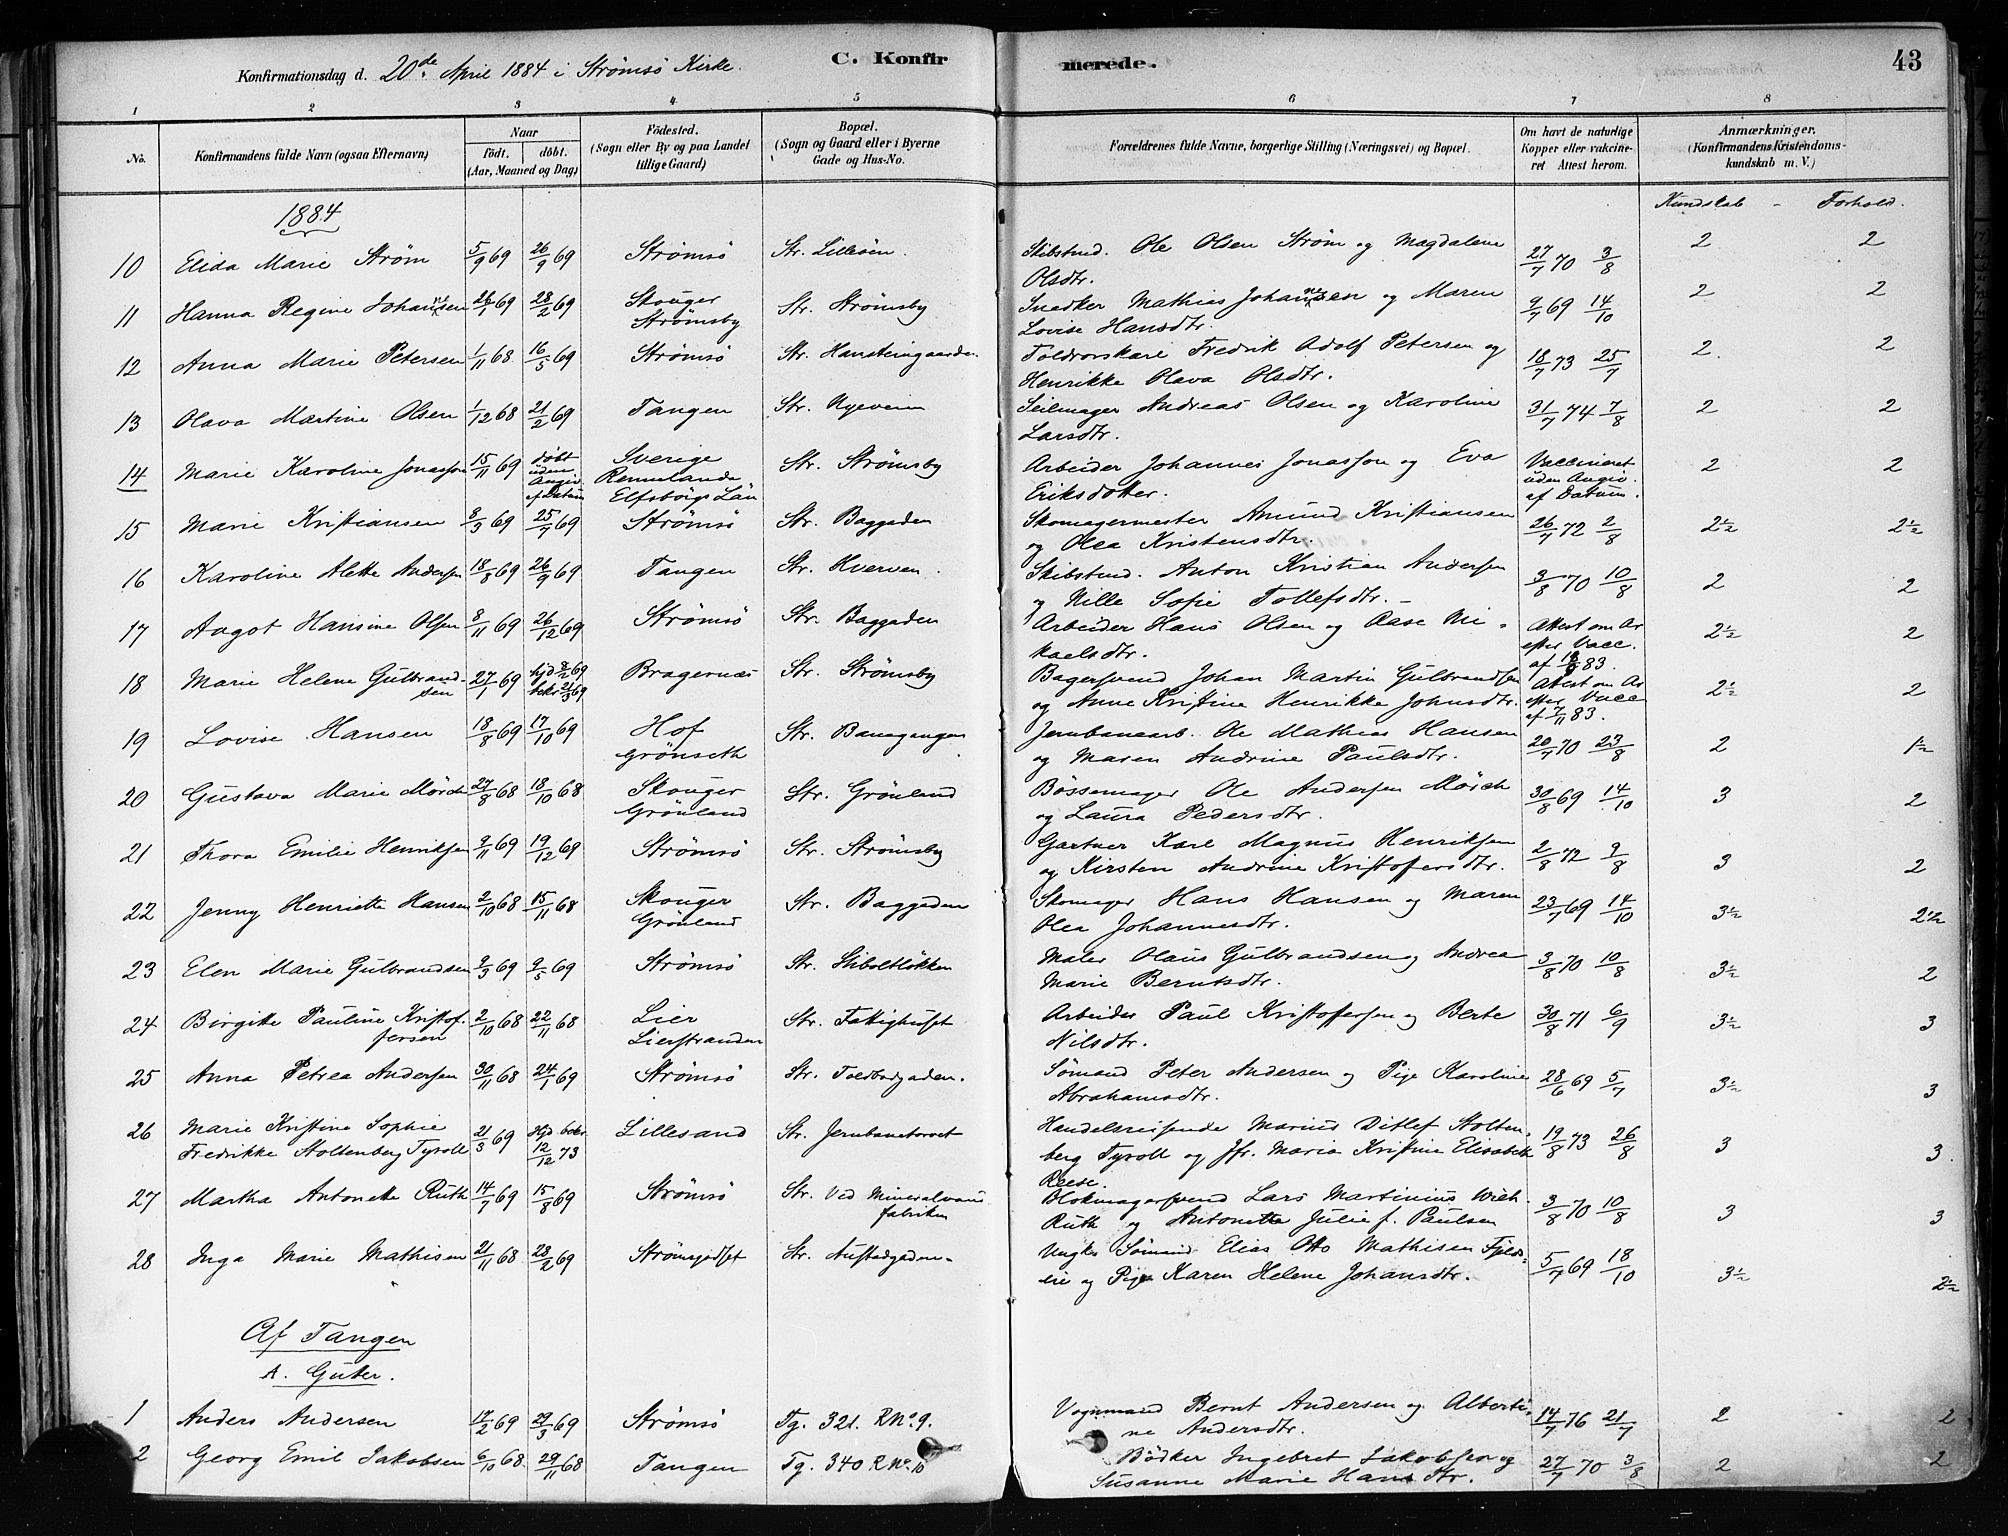 Konfirmationsdag d. 20de April 1884 i Strömsö Kirke. C. Konfirmerede. 43
1 2 3 4 5 6 7 8
No. Konfirmandens fulde Navn (ogsaa Efternavn) Naar födt. döbt. (Aar, Maaned og Dag) Födested. (Sogn eller By og paa Landet tillige Gaard) Bopæl. (Sogn og Gaard eller i Byerne Gade og Hus-No. Forældrenes fulde Navne, borgerlige Stilling (Næringsvei) og Bopæl. Om havt de naturlige Kopper eller vakcineret Attest herom. Anmærkninger. (Konfirmandens Kristendomskundskab m. V.)
1884 Kundskab - Forhold.
10 Elida Marie Ström 5/9 69 26/9 69 Strömsö Str. Lilleöen. Skibstmd. Ole Olsen Ström og Magdalene Olsdtr. 27/7 70 3/8 2 2
11 Hanna Regine Johannesen 26/1 69 28/2 69 Skouger Strömsby Str. Strömsby Snedker Mathias Johannesen og Maren Lovise Hansdtr. 9/7 69 14/10 2 2
12 Anna Marie Petersen 1/11 68 16/5 69 Strömsö Str. Hansteengaarden. Toldrorskarl Fredrik Adolf Petersen og Henrikke Olava Olsdtr. 18/7 73 25/7 2. 2
13 Olava Martine Olsen 1/12 68 21/2 69 Tangen Str. Nyeveien Seilmager Andreas Olsen og Karoline Larsdtr. 31/7 74 7/8 2 2
14 Marie Karoline Jonasson 15/11 69 döbt uden Angiv. af Datum Sverige Rennelanda Elfsborgs Län Str. Strömsby Arbeider Johannes Jonasson og Eva Eriksdotter. Vaccineret uden Angiv. af Datum. 2 2
15 Marie Kristiansen 8/3 69 25/7 69 Strömsö Str. Baggaden Skomagermester Amund Kristiansen og Olea Kristensdtr. 26/7 72 2/8 2½ 2½
16 Karoline Alette Andersen 18/8 69 26/9 69 Tangen Str. Hverven. Skibstmd. Anton Kristian Andersen og Nille Sofie Tollefsdtr. 3/8 70 10/8 2 2
17 Aagot Hansine Olsen 8/11 69 26/12 69 Strömsö Str. Baggaden Arbeider Hans Olsen og Aase Mikaelsdtr. Attest om Ar efter Vacc. af 83. 2½ 2
18 Marie Helene Gulbrandsen 27/1 69 hjd 8/2 69 bekr 21/3 69 Bragernæs Str. Strömsby Bagersvend Johan Martin Gulbrandsen og Anne Kristine Henrikke Johnsdtr. Attest om Ar efter Vacc af 7/11 83. 2½ 2
19 Lovise Hansen 18/8 69 17/10 69 Hof Grönseth Str. Banegangen Jernbanearb. Ole Mathias Hansen og Maren Andrine Paulsdtr. 20/7 70 23/8 2 1½
20 Gustava Marie Mörch 27/8 68 18/10 68 Skouger Grönland Str. Grönland Bössemager Ole Andersen Mörch og Laura Pedersdtr. 30/8 69 14/10 3 2
21 Thora Emilie Henriksen 9/11 69 19/12 69 Strömsö Str. Strömsby Gartner Karl Magnus Henriksen og Kirsten Andrine Kristoffersdtr. 2/8 72 9/8 3 2
22 Jenny Henriette Hansen 2/10 68 15/11 68 Skouger Grönland Str. Baggaden Skomager Hans Hansen og Maren Olea Johannesdtr. 23/7 69 14/10 3½ 2½
23 Elen Marie Gulbrandsen 9/3 69 9/5 69 Strömsö Str. Stiboltlökken Maler Olaus Gulbrandsen og Andrea Marie Berntsdtr. 3/8 70 10/8 3½ 2
24 Birgitte Pauline Kristoffersen 2/10 68 22/11 68 Lier Lierstranden Str. Fattighuset Arbeider Paul Kristoffersen og Berte Nilsdtr. 30/8 71 6/9 3½ 3
25 Anna Petrea Andersen 30/11 68 24/1 69 Strömsö Str. Toldbodgaden. Sömand Peter Andersen og Pige Karoline Abrahamsdtr. 28/6 69 5/7 3½ 3
26 Marie Kristine Sophie Fredrikke Stoltenberg Tyroll 21/3 69 Hjd. bekr. 12/12 73 Lillesand Str. Jernbanetorvet Handelsreisende Marius Ditlef Stoltenberg Tyroll og Jfr. Maria Kristine Elisabeth Reese. 19/8 73 26/8 3 3.
27 Martha Antonette Ruth 14/7 69 15/8 69 Strömsö Str. Ved Mineralvandfabriken Blokmagersvend Lars Martinius Wilh. Ruth og Antonette Julie f. Paulsen 3/8 70 10/8 3 3
28 Inga Marie Mathisen 21/11 68 28/2 69 Strömsgodset Str. Austadgaden. Ungk. Sömand Elias Otto Mathisen og Pige Karen Helene Johansdtr. 5/7 69 18/10 3½ 2½
Af Tangen
A. Gutter.
1 Anders Andersen 17/2 69 29/3 69 Strömsö Tg. 321. R No. 9. Vognmand Bernt Andersen og Albertine Andersdtr. 14/7 76 21/7 2 2
2 Georg Emil Jakobsen 6/10 68. 29/11 68 Tangen Tg. 340 R No. 10 Bödker Ingebret Jakobsen og Susanne Marie Hansdtr. 27/7 70 3/8 2 2